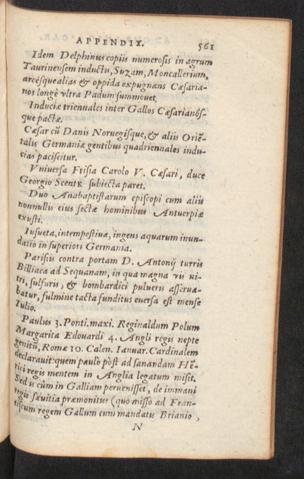 APPENDIX. 561
Idem Delphinus copiis numerosis in agrum
Taurinensem inductis, Suzam, Moncallerium,
arcésque alias & oppida expugnans Cæsaria-
nos longè vltra Padum summouet.
Induciæ triennales inter Gallos Cæsarianós-
que pactæ.
Cæsar cū Danis Noruegísque, & aliis Oriē-
talis Germaniæ gentibus quadriennales indu-
cias paciscitur.
Vniuersa Frisia Carolo V. Cæsari, duce
Georgio Scentk subiecta paret.
Duo Anabaptistarum episcopi cum aliis
nonnullis eius sectæ hominibus Antuerpiæ
exusti.
Insueta, intempestiuáe, ingens aquarum inun-
datio in superiori Germania.
Parisiis contra portam D. Antonij turris
Billiaca ad Sequanam, in qua magna vis ni-
tri, sulfuris, & bombardici pulueris asserua-
batur, fulmine tacta funditus euersa est mense
Iulio.
Paulus 3. Ponti. maxi. Reginaldum Polum
Margarita Edouardi 4. Angli regis nepte
genitū, Romæ 10. Calen. Ianuar. Cardinalem
declarauit: quem paulo pòst ad sanandam Hē-
rici regis mentem in Anglia legatum misit.
Sed is cùm in Galliam peruenisset, de immani
regis sæuitia præmonitus (quo misso ad Fran-
ciscum regem Gallum cum mandatis Brianio,
N